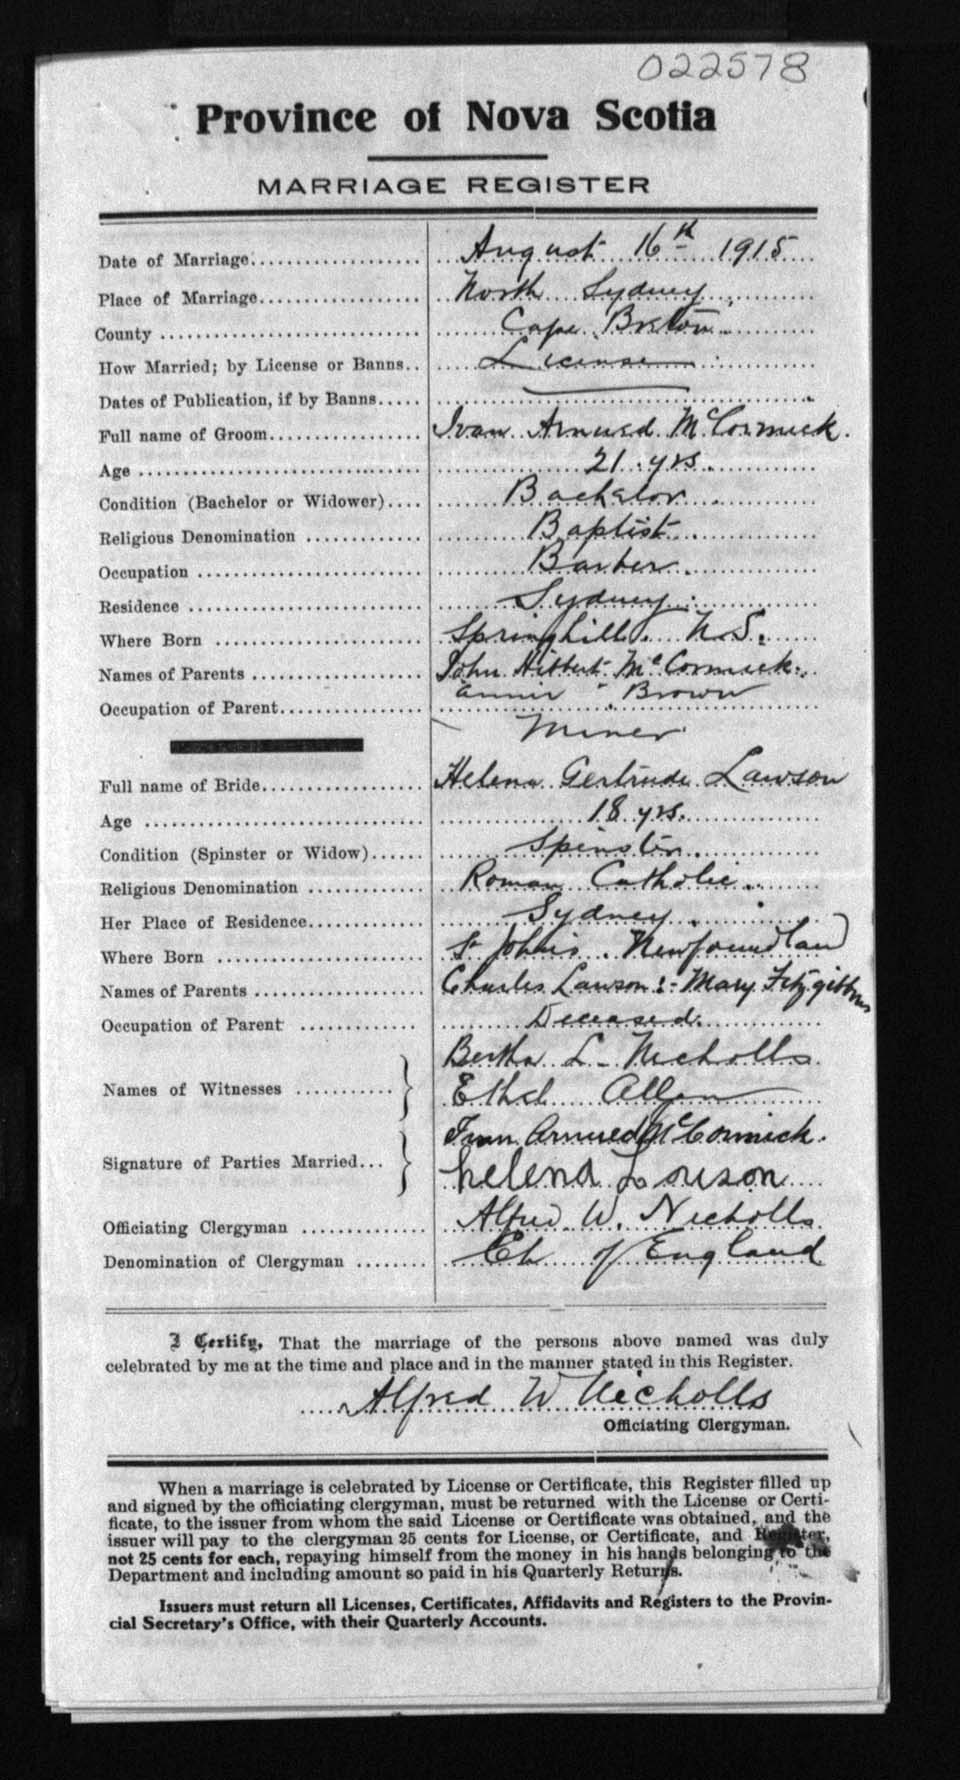 022578
Province of Nova Scotia
MARRIAGE REGISTER
Date of Marriage August 16th 1915
Place of Marriage North Sydney
County Cape Breton
How Married; by License or Banns License
Dates of Publication, if by Banns
Full name of Groom Ivan Armued McCormick.
Age 21 yrs.
Condition (Bachelor or Widower) Bachelor
Religious Denomination Baptist
Occupation Barber
Residence Sydney
Where Born Springhill. N.S.
Names of Parents John Hibbert McCormick.
Annie Brown
Occupation of Parent Miner
Full name of Bride Helena Gertrude Lawson
Age 18 yrs.
Condition (Spinster or Widow) Spinster.
Religious Denomination Roman Catholic
Her Place of Residence Sydney
Where Born St Johns. Newfoundland
Names of Parents Charles Lawson:- Mary Fitzgibbons
Occupation of Parent Deceased.
Names of Witnesses Bertha L. Nicholls
Ethel Allen
Signature of Parties Married Ivan Armued McCormick.
helena Louson
Officiating Clergyman Alfred W. Nicholls
Denomination of Clergyman Ch of England
I Certify, That the marriage of the persons above named was duly
celebrated by me at the time and place and in the manner stated in this Register.
Alfred W Nicholls
Officiating Clergyman.
When a marriage is celebrated by License or Certificate, this Register filled up
and signed by the officiating clergyman, must be returned with the License or Certi-
ficate, to the issuer from whom the said License or Certificate was obtained, and the
issuer will pay to the clergyman 25 cents for License, or Certificate, and Register,
not 25 cents for each, repaying himself from the money in his hands belonging to the
Department and including amount so paid in his Quarterly Returns.
Issuers must return all Licenses, Certificates, Affidavits and Registers to the Provin-
cial Secretary's Office, with their Quarterly Accounts.